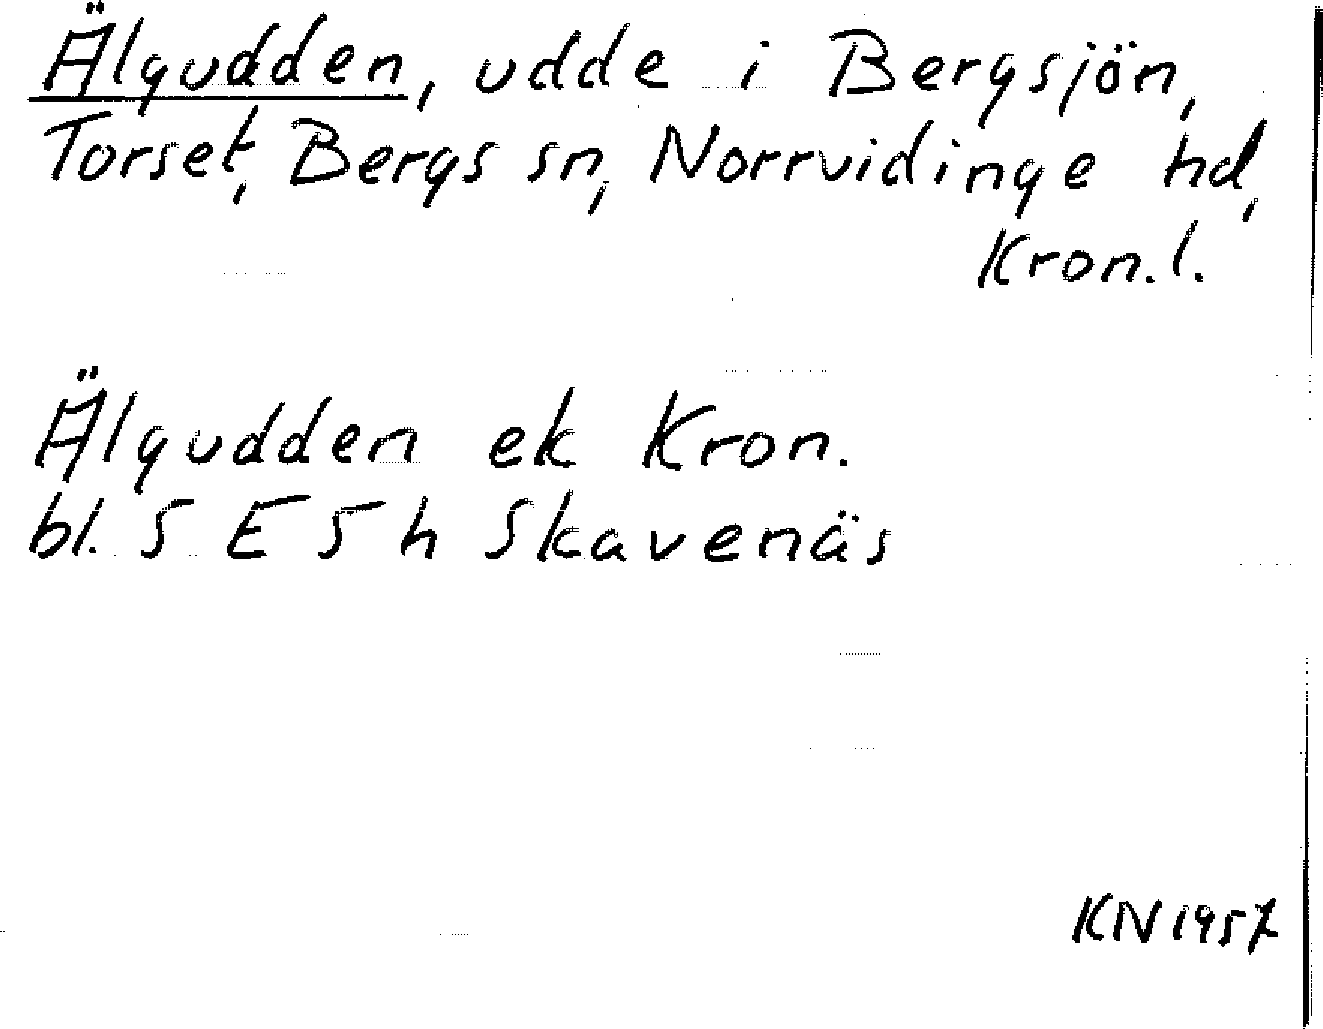 Älgudden, udde i Bergsjön,
Torset, Bergs sn, Norrvidinge hd,
Kron.l.
Älgudden ek Kron.
bl. 5 E 5 h Skavenäs
KN 1957